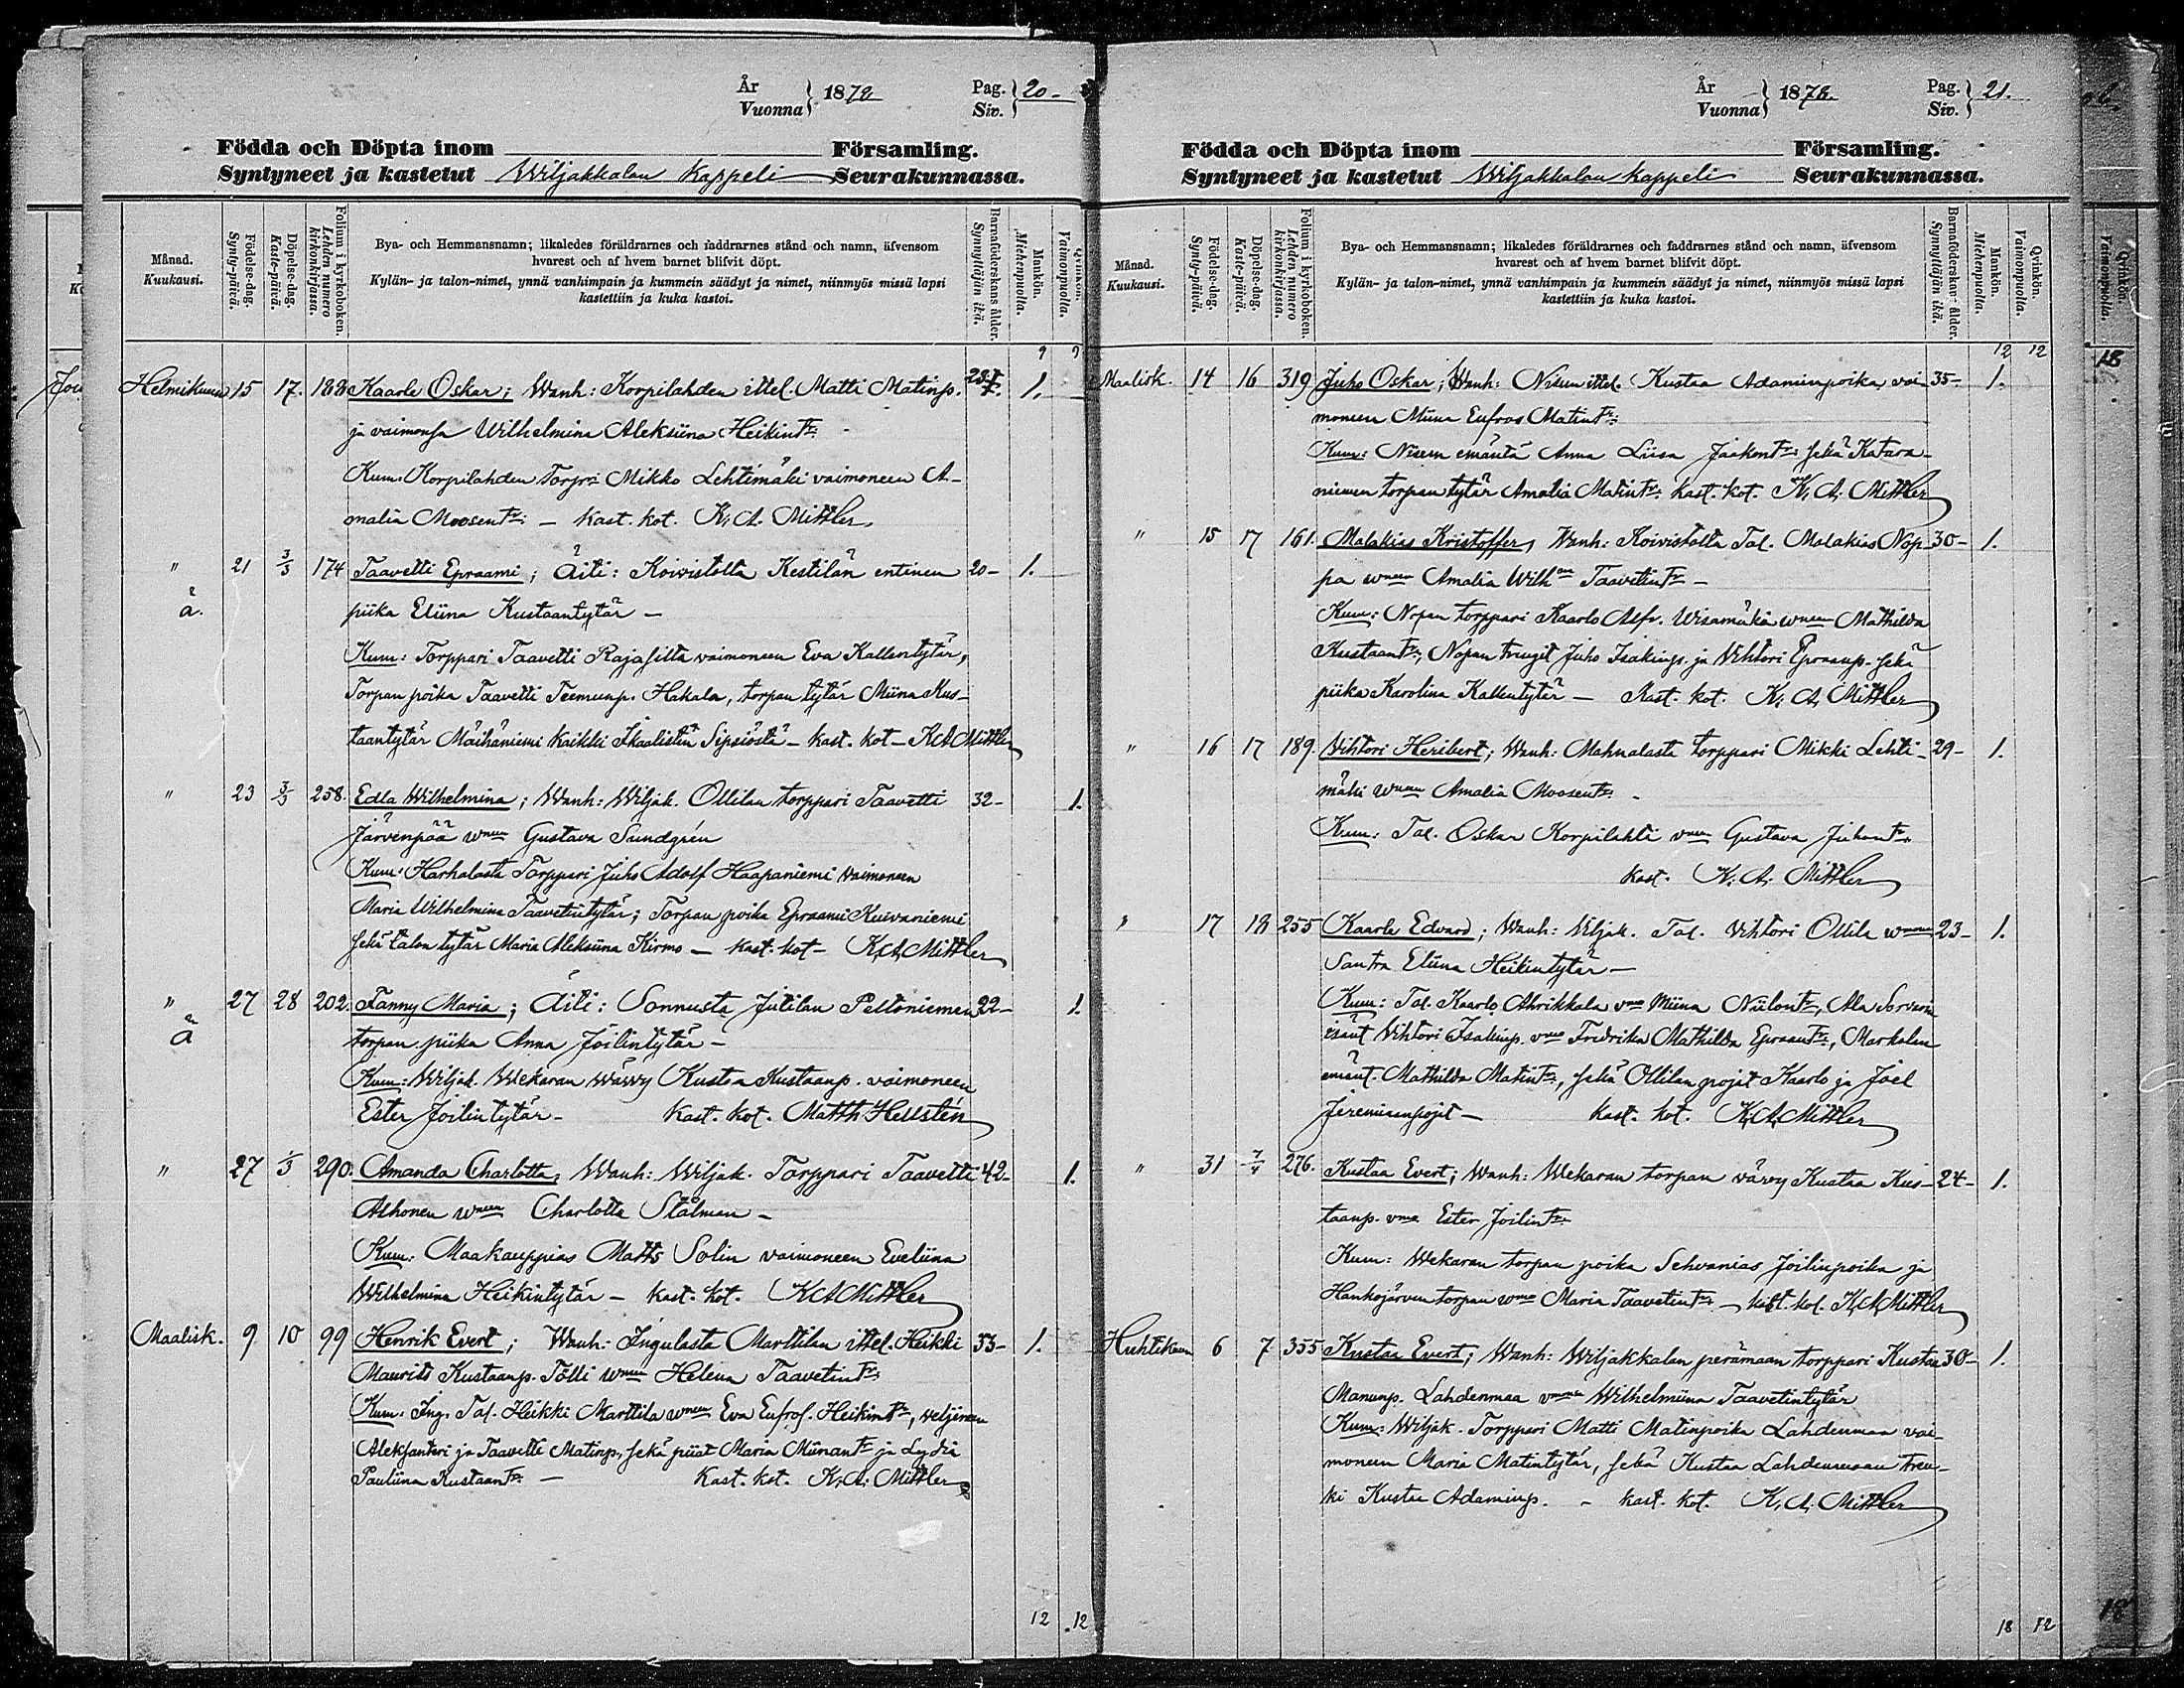 År
Vuonna } 1878
Pag.
Siv. } 20-
Födda och Döpta inom Församling.
Syntyneet ja kastetut Wiljakkalan Kappeli Seurakunnassa.
Månad.
Kuukausi.
Födelse-dag.
Synty-päivä.
Döpelse-dag.
Kaste-päivä.
Folium i kyrkoboken.
Lehden numero kirkonkirjassa.
Bya- och Hemmansnamn; likaledes föräldrarnes och faddrarnes stånd och namn, äfvensom
hvarest och af hvem barnet blifvit döpt.
Kylän- ja talon-nimet, ynnä vanhimpain ja kummein säädyt ja nimet, niinmyös missä lapsi
kastettiin ja kuka kastoi.
Barnaföderskans ålder.
Synnyttäjän ikä.
Mankön.
Miehenpuolta.
Qvinkön.
Vaimonpuolta.
9 9
Helmikuun 15 17. 188 Kaarle Oskar; Wanh: Korpilahden ittel. Matti Matinp. 1.
ja vaimonsa Wilhelmina Aleksiina Heikintr.
Kum: Korpilahden Torpri Mikko Lehtimäki vaimoneen A-
malia Moosentr: - Kast. kot. K. A. Mittler
" 21 3/3 174 Taavetti Epraami; Äiti: Koivistolta Kestilän entinen 20- 1.
ä. piika Eliina Kustaantytär -
Kum: Torppari Taavetti Rajasilta vaimoneen Eva Kallentytär,
Torpan poika Taavetti Teemunp. Hakala, torpan tytär Miina Kus-
taantytär Mäihäniemi kaikki Ikaalistin Sipsiöstä - kast. kot - K A Mittler
" 23 3/3 258. Edla Wilhelmina; Wanh: Wiljak. Ollilan torppari Taavetti 32- 1.
Järvenpää wneen Gustava Sundgrén
Kum: Harhalasta Torppari Juho Adolf Haapaniemi vaimoneen
Maria Wilhelmina Taavetintytär; Torpan poika Epraami Kuivaniemi
sekä talon tytär Maria Aleksiina Kirmo - kast. kot - K. A. Mittler
" 27 28 202. Fanny Maria; Äiti: Sonnusta Jutilan Peltoniemen 22- 1.
Ä torpan piika Anna Joilintytär -
Kum: Wiljak. Wekaran wäwy Kustaa Kustaanp. vaimoneen
Ester Joilintytär - Kast. kot. Matth Hellstén
" 27 1/3 290. Amanda Charlotta; Wanh: Wiljak. Torppari Taavetti 42- 1.
Alhonen wneen Charlotta Stålman -
Kum: Maakauppias Matts Solin vaimoneen Eveliina
Wilhelmina Heikintytär - kast. kot. K A Mittler
Maalisk. 9 10 99 Henrik Evert; Wanh: Ingulasta Marttilan ittel. Heikki 33- 1.
Maurits Kustaanp. Tölli wneen Helena Taavetintr.
Kum: Ing. Tal. Heikki Marttila wneen Eva Eufros. Heikintr, veljineen
Aleksanteri ja Taavetti Matinp, sekä piiat Maria Miinantr ja Lydia
Pauliina Kustaantr. - Kast. kot. K. A. Mittler
12 12
År
Vuonna } 1878.
Pag.
Siv. } 21.
Födda och Döpta inom Församling.
Syntyneet ja kastetut Wiljakkalan Kappeli Seurakunnassa.
Månad.
Kuukausi.
Födelse-dag.
Synty-päivä.
Döpelse-dag.
Kaste-päivä.
Folium i kyrkoboken.
Lehden numero kirkonkirjassa.
Bya- och Hemmansnamn; likaledes föräldrarnes och faddrarnes stånd och namn, äfvensom
hvarest och af hvem barnet blifvit döpt.
Kylän- ja talon-nimet, ynnä vanhimpain ja kummein säädyt ja nimet, niinmyös missä lapsi
kastettiin ja kuka kastoi.
Barnaföderskans ålder.
Synnyttäjän ikä.
Mankön.
Miehenpuolta.
Qvinkön.
Vaimonpuolta.
12 12
Maalisk. 14 16 319 Juho Oskar; Wanh: Nisun ittel. Kustaa Adaminpoika vai- 35- 1.
moneen Miina Eufros Matintr:
Kum: Nisun emäntä Anna Liisa Jaakontr: sekä Katara-
niemen torpan tytär Amalia Matintr: kast. kot. K. A. Mittler
" 15 17 161. Malakias Kristoffer, Wanh: Koivistolta Tal. Malakias Nop- 30- 1.
pa wneen Amalia Wilhna Taavetintr -
Kum: Nopan torppari Kaarlo Alfr. Wisamäki wneen Mathilda
Kustaantr, Nopan trengit Juho Isakinp. ja Vihtori Epraanp. sekä
piika Karolina Kallentytär - Kast. kot. K. A. Mittler
" 16 17 189. Vihtori Heribert; Wanh: Mahnalasta torppari Mikki Lehti- 29- 1.
mäki wneen Amalia Moosentr. -
Kum: Tal. Oskar Korpilahti vneen Gustava Juhantr.
kast. K. A. Mittler
" 17 18 255 Kaarle Edvard; Wanh: Wiljak. Tal. Vihtori Ollila wneen 23- 1.
Santra Eliina Heikintytär -
Kum: Tal. Kaarlo Ahrikkala vne Miina Niilontr, Ala Sorvarin
isänt Vihtori Isakinp. vne Fredrika Mathilda Epraantr., Markalan
emänt. Mathilda Matintr, sekä Ollilan pojat Kaarlo ja Joel
Jeremianpojat - kast. kot. K. A. Mittler
" 31 7/4 276. Kustaa Evert; Wanh: Wekaran torpan vävy Kustaa Kus- 24- 1.
taanp. vne Ester Joilintr.
Kum: Wekaran torpan poika Sehvanias Joilinpoika ja
Hankojärven torpan wmo Maria Taavetintr. - kast. kot. K. A. Mittler
Huhtikuun 6 7 355 Kustaa Evert; Wanh: Wiljakkalan perämaan torppari Kustaa 30- 1.
Manunp. Lahdenmaa vneen Wilhelmiina Taavetintytär
Kum: Wiljak. Torppari Matti Matinpoika Lahdenmaa vai-
moneen Maria Matintytär, sekä Kustaa Lahdenmaan tren-
ki Kustaa Adaminp. - kast. kot. K. A. Mittler
18 12
18
18